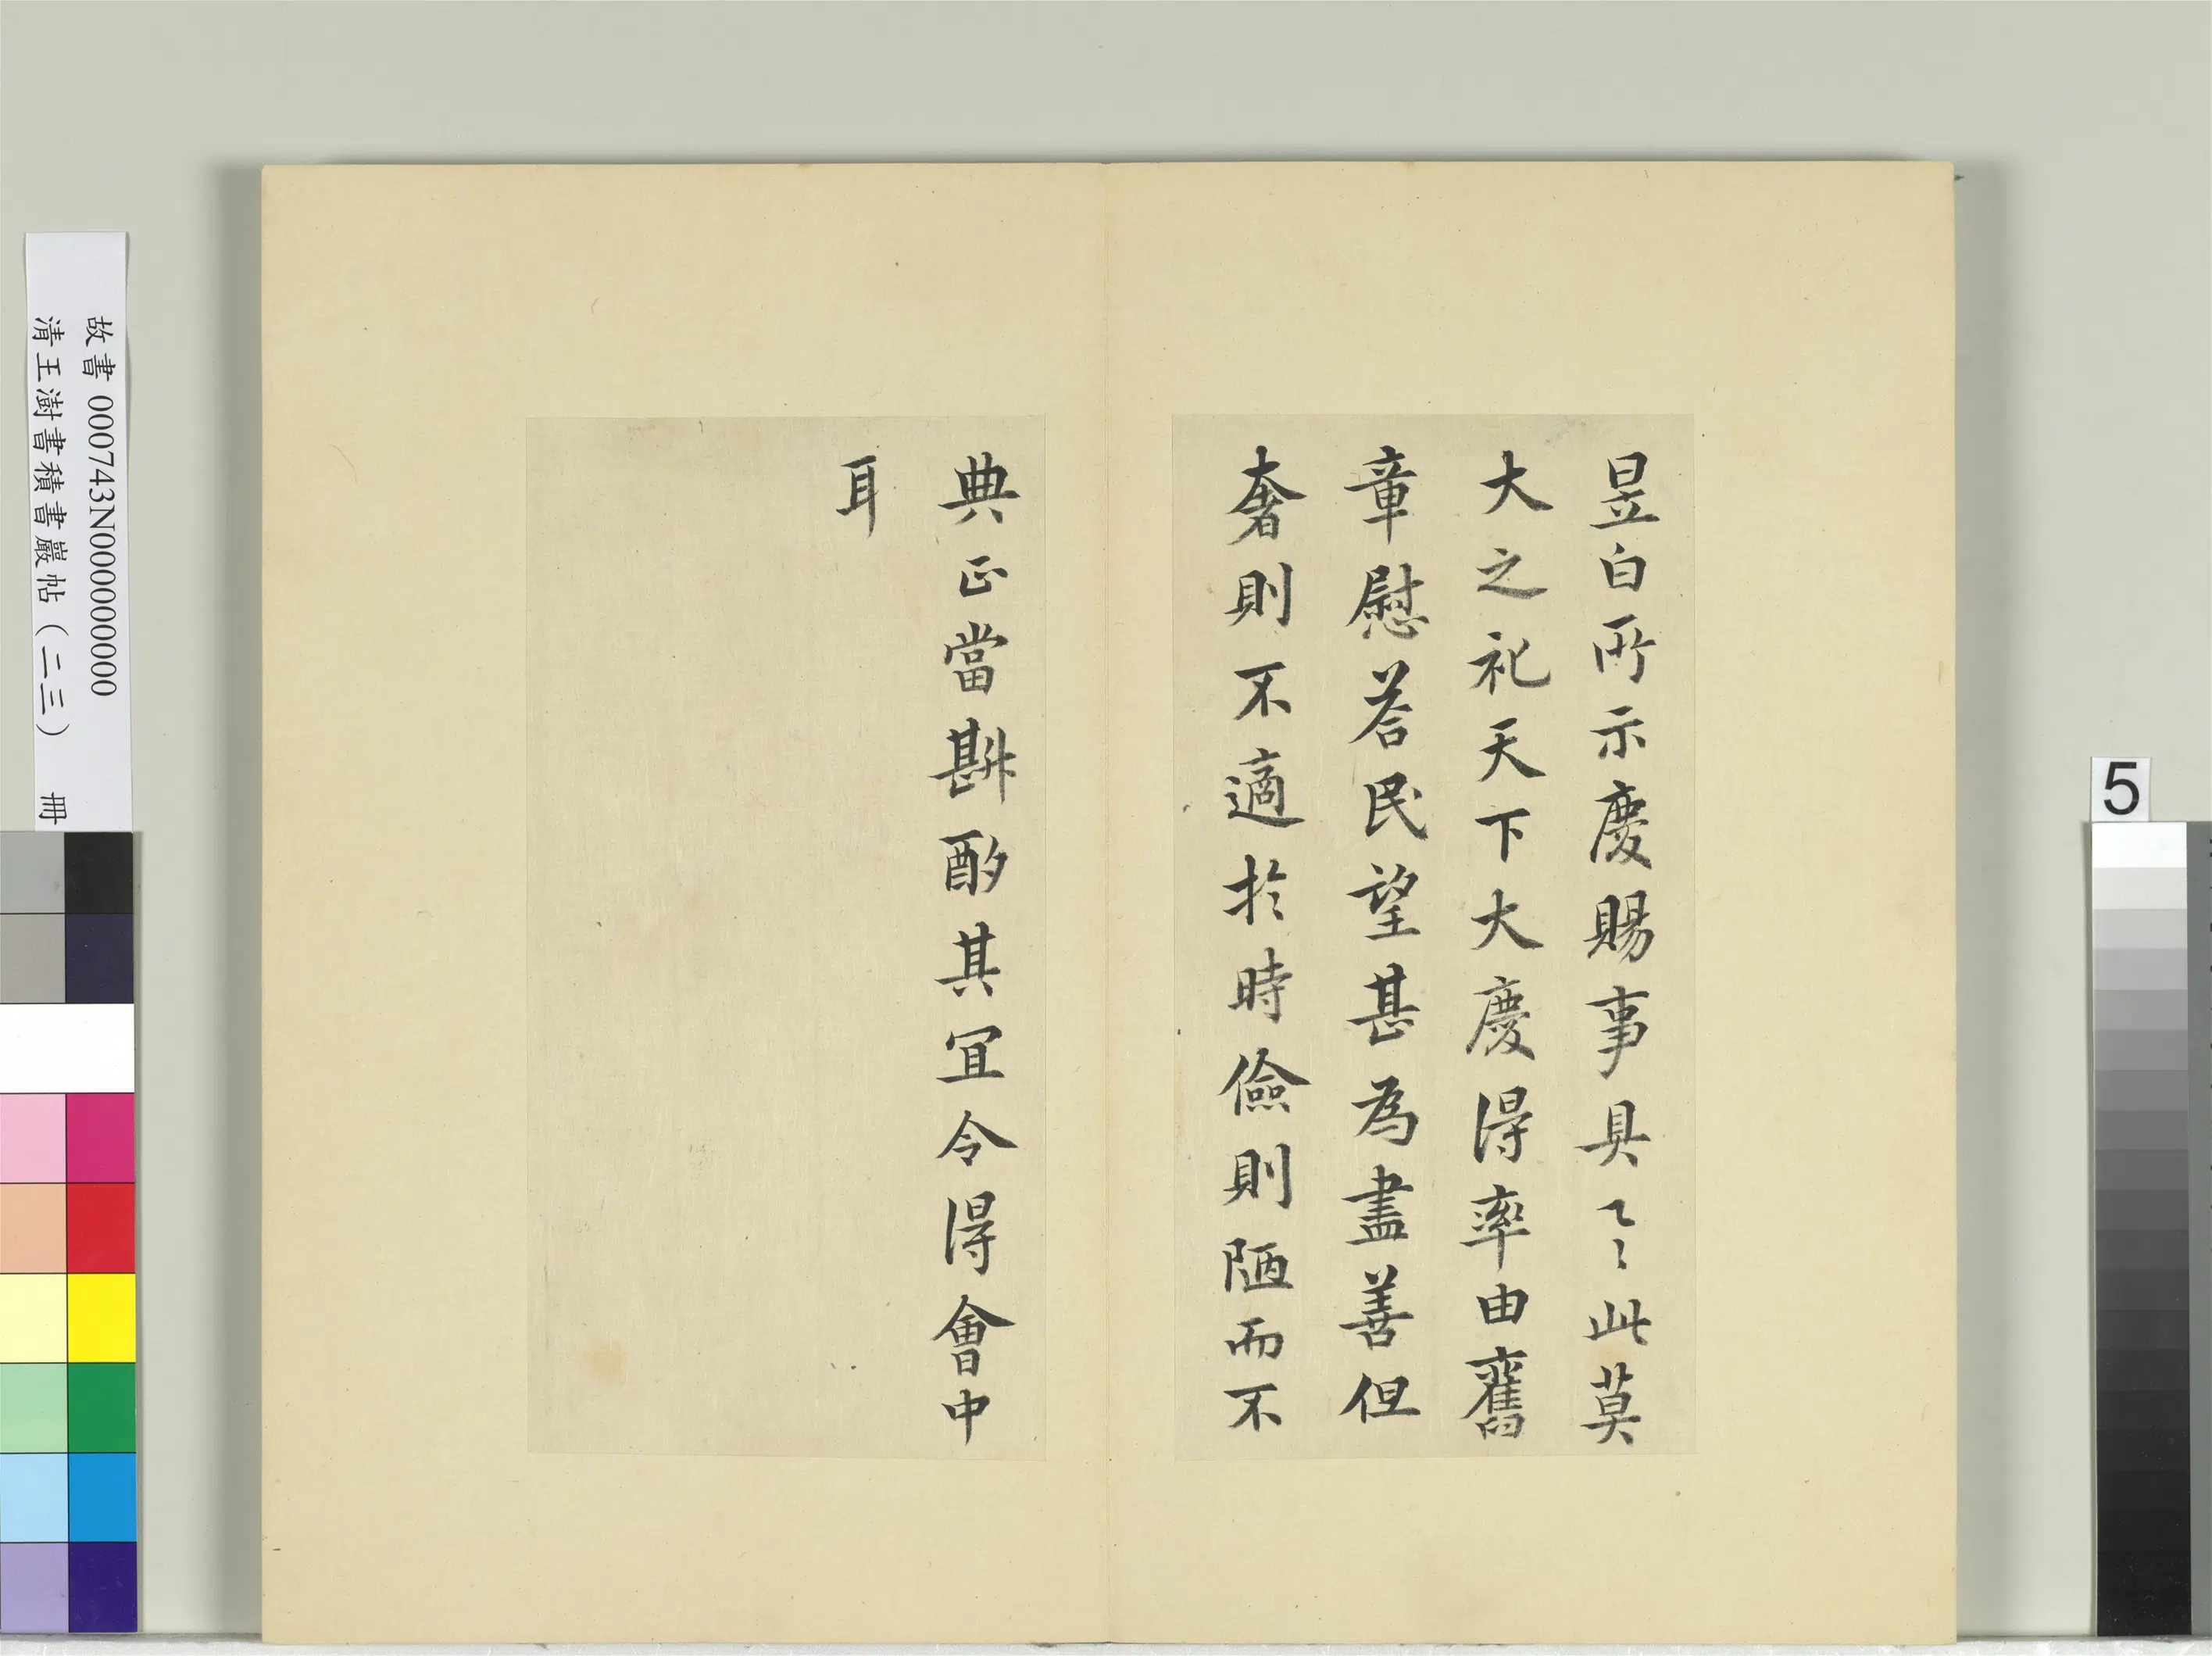 昱白所示慶賜事具々此莫
大之祀天下大慶得率由舊
章慰荅民望甚為盡善但
奢則不適於時儉則陋而不
典正當斟酌其宜令得會中
耳
故書 000743N000000000
清王澍書積書巖帖（二三） 冊
5